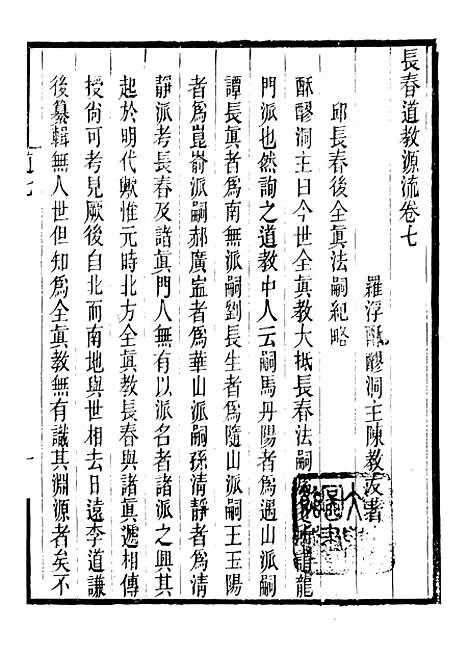 長春道教源流卷七
羅浮酥醪洞主陳教友著
邱長春後全眞法嗣紀略
酥醪洞主曰今世全眞教大抵長春法嗣龍
門派也然詢之道教中人云嗣馬丹陽者爲遇山派嗣
譚長眞者爲南無派嗣劉長生者爲隨山派嗣王玉陽
者爲崑嵛派嗣郝廣寍者爲華山派嗣孫清靜者爲清
靜派考長春及諸眞門人無有以派名者諸派之興其
起於明代歟惟元時北方全眞教長春與諸眞遞相傳
授尚可考見厥後自北而南地與世相去日遠李道謙
後纂輯無人世但知爲全眞教無有識其淵源者矣不